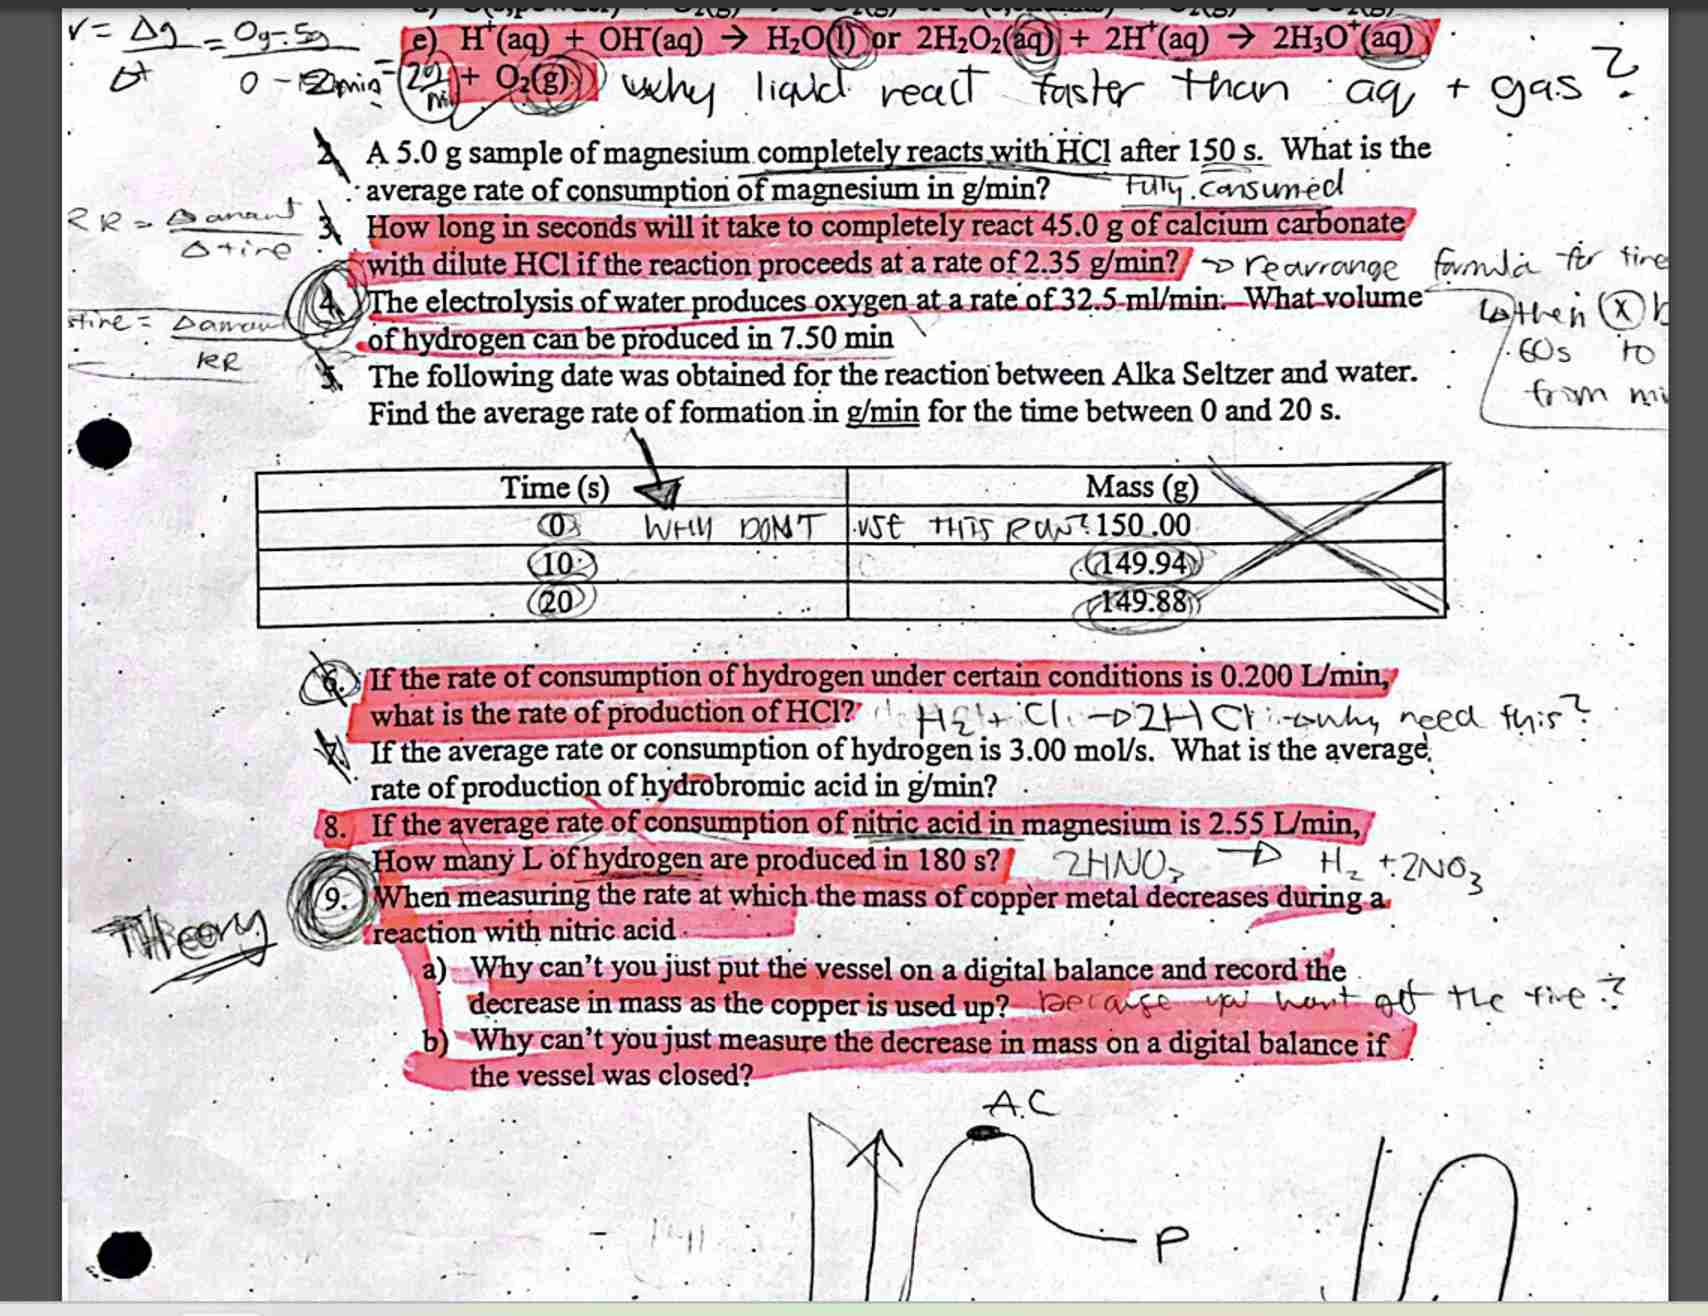 e) H⁺(aq) + OH⁻(aq) → H₂O(l) or 2H₂O₂(aq) + 2H⁺(aq) → 2H₃O⁺(aq)
+ O₂(g) why liquid react faster than aq + gas?
2. A 5.0 g sample of magnesium completely reacts with HCl after 150 s. What is the
average rate of consumption of magnesium in g/min? fully consumed
RR = Δamount / Δtime
3. How long in seconds will it take to completely react 45.0 g of calcium carbonate
with dilute HCl if the reaction proceeds at a rate of 2.35 g/min? → rearrange formula for time
→ then (x)
60s to
from
4. The electrolysis of water produces oxygen at a rate of 32.5 ml/min. What volume
of hydrogen can be produced in 7.50 min
time = Δamount / RR
5. The following date was obtained for the reaction between Alka Seltzer and water.
Find the average rate of formation in g/min for the time between 0 and 20 s.
Time (s) Mass (g)
0 WHY DON'T USE THIS RUN? 150.00
10 149.94
20 149.88
6. If the rate of consumption of hydrogen under certain conditions is 0.200 L/min,
what is the rate of production of HCl? H₂ + Cl → 2HCl → why need this?
7. If the average rate or consumption of hydrogen is 3.00 mol/s. What is the average
rate of production of hydrobromic acid in g/min?
8. If the average rate of consumption of nitric acid in magnesium is 2.55 L/min,
How many L of hydrogen are produced in 180 s? 2HNO₃ → H₂ + 2NO₃
9. When measuring the rate at which the mass of copper metal decreases during a
reaction with nitric acid
Theory
a) Why can't you just put the vessel on a digital balance and record the
decrease in mass as the copper is used up? because you want off the
b) Why can't you just measure the decrease in mass on a digital balance if
the vessel was closed?
A.C
P